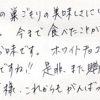 の巣ごもりの美味しさにい
。今まで食べたことが
い味です。ホワイトチョコ
ですね!!是非、また購
様、これからもがんば